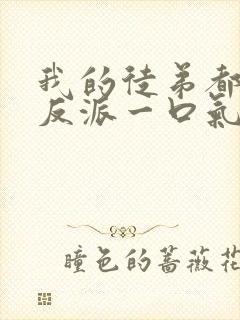 我的徒弟都
反派一口氣
瞳色的蔷薇花